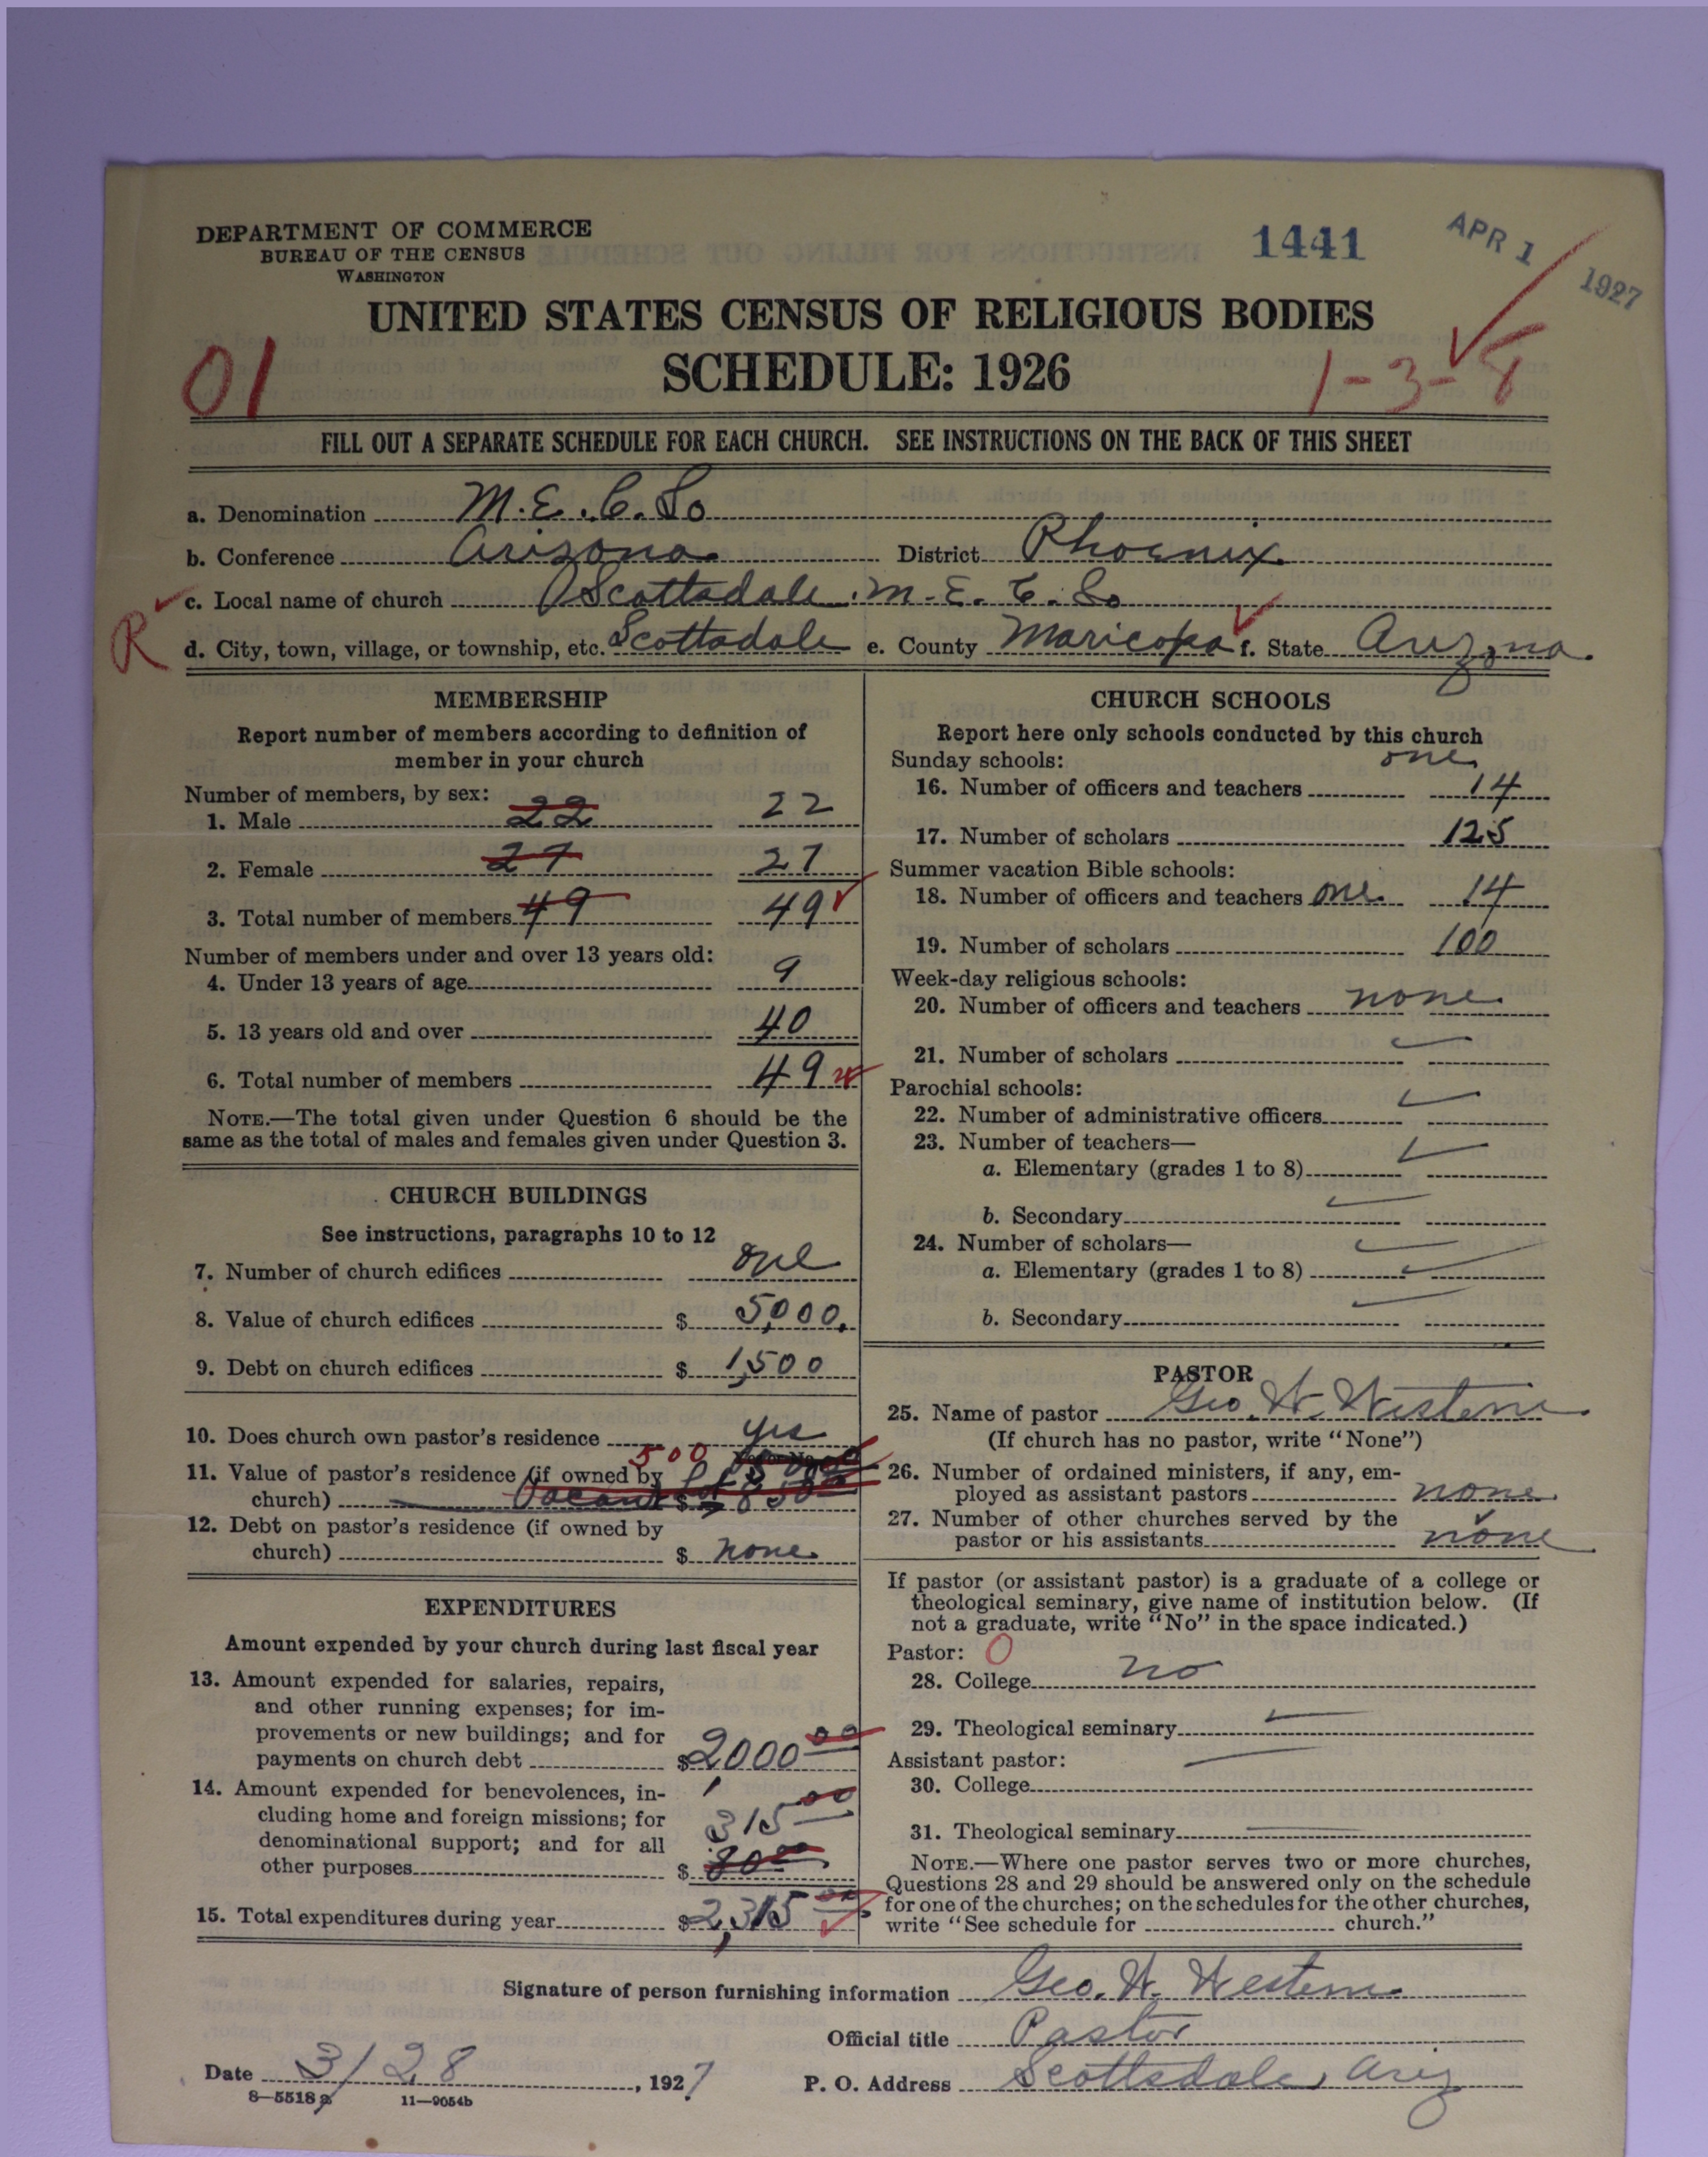 DEPARTMENT OF COMMERCE
BUREAU OF THE CENSUS
WASHINGTON
1441
APR 1 1927
UNITED STATES CENSUS OF RELIGIOUS BODIES
SCHEDULE: 1926
01
1-3-8
FILL OUT A SEPARATE SCHEDULE FOR EACH CHURCH. SEE INSTRUCTIONS ON THE BACK OF THIS SHEET
a. Denomination M.E.C.So
b. Conference Arizona District Phoenix
c. Local name of church Scottsdale M.E.C.So
R
d. City, town, village, or township, etc. Scottsdale e. County Maricopa f. State Arizona.
MEMBERSHIP
Report number of members according to definition of
member in your church
Number of members, by sex:
1. Male 22 22
2. Female 27 27
3. Total number of members 49 49
Number of members under and over 13 years old:
4. Under 13 years of age 9
5. 13 years old and over 40
6. Total number of members 49
NOTE.—The total given under Question 6 should be the
same as the total of males and females given under Question 3.
CHURCH BUILDINGS
See instructions, paragraphs 10 to 12
7. Number of church edifices one
8. Value of church edifices $ 5,000.
9. Debt on church edifices $ 1,500
10. Does church own pastor's residence yes
500
11. Value of pastor's residence (if owned by
church) Vacant Lot $
12. Debt on pastor's residence (if owned by
church) $ none
EXPENDITURES
Amount expended by your church during last fiscal year
13. Amount expended for salaries, repairs,
and other running expenses; for im-
provements or new buildings; and for
payments on church debt $ 2,000 00
14. Amount expended for benevolences, in-
cluding home and foreign missions; for
denominational support; and for all
other purposes $ 315 00
15. Total expenditures during year $ 2,315 00
CHURCH SCHOOLS
Report here only schools conducted by this church
Sunday schools: one
16. Number of officers and teachers 14
17. Number of scholars 125
Summer vacation Bible schools:
18. Number of officers and teachers one 14
19. Number of scholars 100
Week-day religious schools:
20. Number of officers and teachers none
21. Number of scholars
Parochial schools:
22. Number of administrative officers
23. Number of teachers—
a. Elementary (grades 1 to 8)
b. Secondary
24. Number of scholars—
a. Elementary (grades 1 to 8)
b. Secondary
PASTOR
25. Name of pastor Geo. W. Westerns
(If church has no pastor, write "None")
26. Number of ordained ministers, if any, em-
ployed as assistant pastors none
27. Number of other churches served by the
pastor or his assistants none
If pastor (or assistant pastor) is a graduate of a college or
theological seminary, give name of institution below. (If
not a graduate, write "No" in the space indicated.)
Pastor: 0
28. College no
29. Theological seminary
Assistant pastor:
30. College
31. Theological seminary
NOTE.—Where one pastor serves two or more churches,
Questions 28 and 29 should be answered only on the schedule
for one of the churches; on the schedules for the other churches,
write "See schedule for church."
Signature of person furnishing information Geo. W. Westerns
Official title Pastor
Date 3/28, 1927
P. O. Address Scottsdale, Ariz
8—5518 a 11—9054b